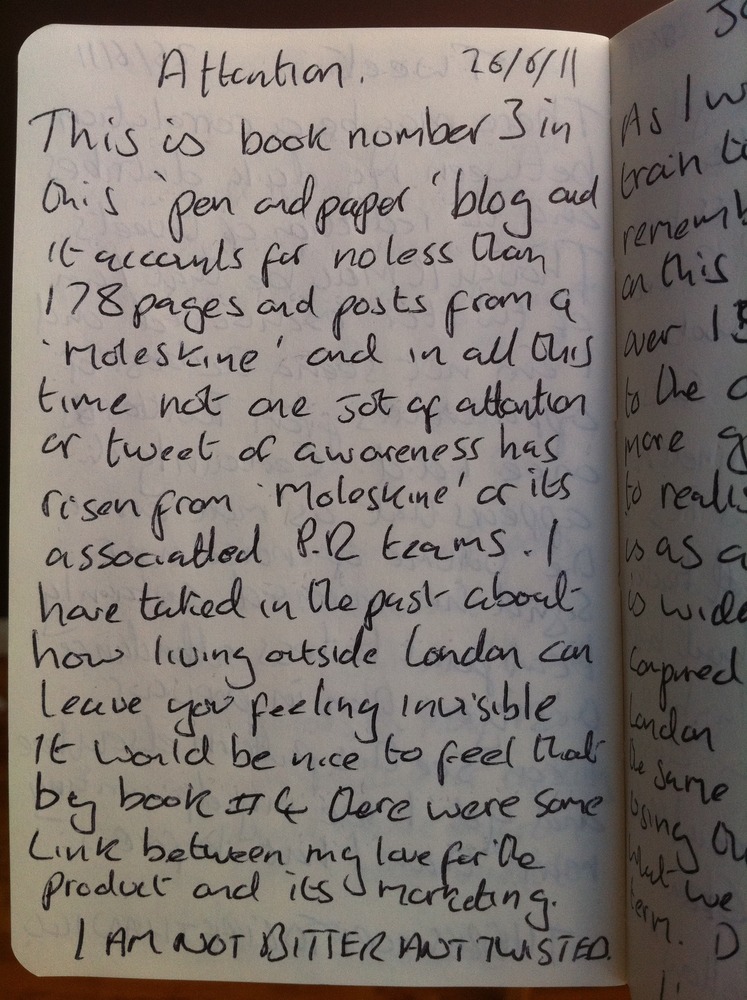 Attention. 26/6/11
This is book number 3 in
this 'pen and paper' blog and
it accounts for no less than
178 pages and posts from a
'Moleskine' and in all this
time not one jot of attention
or tweet of awareness has
risen from 'Moleskine' or its
associatled P.R teams. I
have talked in the past about
how living outside London can
leave you feeling invisible
It would be nice to feel that
by book #4 there were some
link between my love for the
product and its marketing.
I AM NOT BITTER ANT TWISTED.
As I w
train t
rememb
on this
over 15
to the
more g
to realis
is as a
is wide
Compared
London
the same
using th
what we
term. D